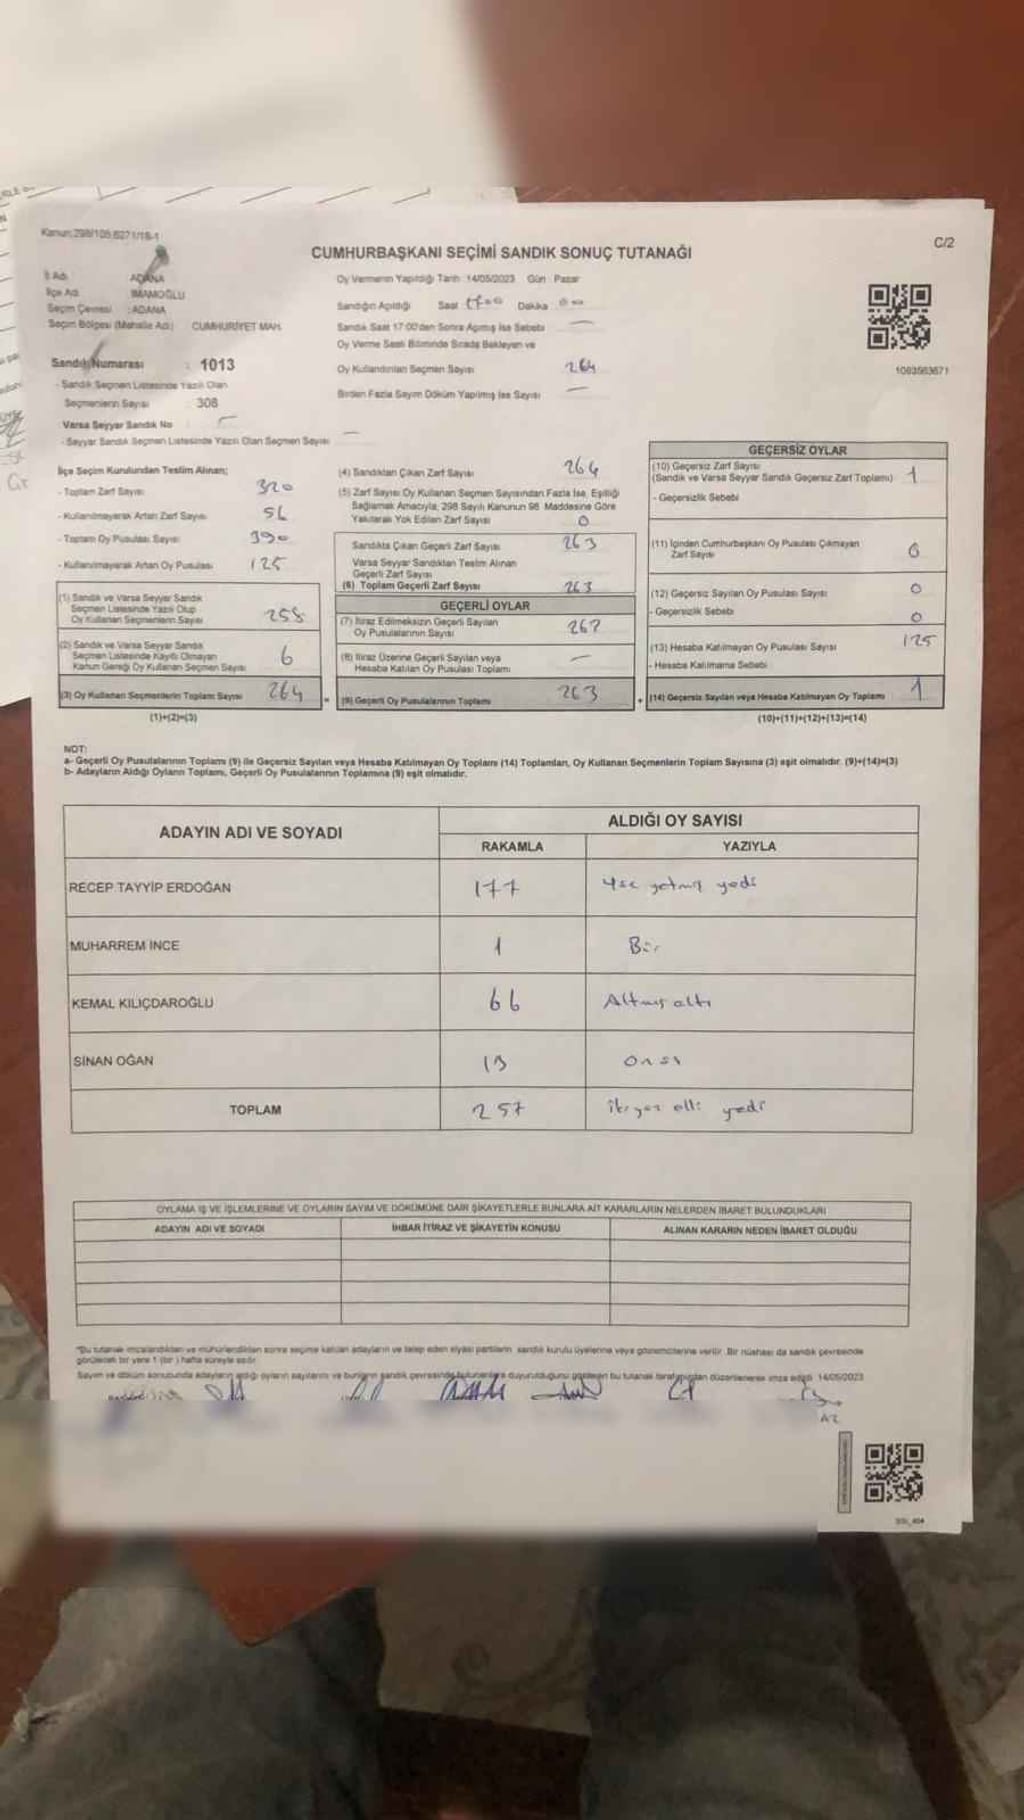 Kanun:298/108,6271/18-1
C/2
CUMHURBAŞKANI SEÇİMİ SANDIK SONUÇ TUTANAĞI
İl Adı ADANA
İlçe Adı İMAMOĞLU
Seçim Çevresi :ADANA
Seçim Bölgesi (Mahalle Adı) CUMHURİYET MAH.
Sandık Numarası : 1013
- Sandık Seçmen Listesinde Yazılı Olan
Seçmenlerin Sayısı 308
Varsa Seyyar Sandık No
- Seyyar Sandık Seçmen Listesinde Yazılı Olan Seçmen Sayısı —
Oy Vermenin Yapıldığı Tarih 14/05/2023 Gün Pazar
Sandığın Açıldığı Saat 17 00 Dakika 00
Sandık Saat 17:00'den Sonra Açılmış İse Sebebi —
Oy Verme Saati Bitiminde Sırada Bekleyen ve
Oy Kullandırılan Seçmen Sayısı 264
Birden Fazla Sayım Döküm Yapılmış İse Sayısı —
1093563671
İlçe Seçim Kurulundan Teslim Alınan;
- Toplam Zarf Sayısı 320
- Kullanılmayarak Artan Zarf Sayısı 56
- Toplam Oy Pusulası Sayısı 390
- Kullanılmayarak Artan Oy Pusulası 125
(1) Sandık ve Varsa Seyyar Sandık
Seçmen Listesinde Yazılı Olup
Oy Kullanan Seçmenlerin Sayısı 258
(2) Sandık ve Varsa Seyyar Sandık
Seçmen Listesinde Kayıtlı Olmayan
Kanun Gereği Oy Kullanan Seçmen Sayısı 6
(3) Oy Kullanan Seçmenlerin Toplam Sayısı 264
(1)+(2)=(3)
(4) Sandıktan Çıkan Zarf Sayısı 264
(5) Zarf Sayısı Oy Kullanan Seçmen Sayısından Fazla İse, Eşitliği
Sağlamak Amacıyla, 298 Sayılı Kanunun 98. Maddesine Göre
Yakılarak Yok Edilen Zarf Sayısı 0
Sandıkta Çıkan Geçerli Zarf Sayısı 263
Varsa Seyyar Sandıktan Teslim Alınan
Geçerli Zarf Sayısı
(6) Toplam Geçerli Zarf Sayısı 263
GEÇERLİ OYLAR
(7) İtiraz Edilmeksizin Geçerli Sayılan
Oy Pusulalarının Sayısı
(8) İtiraz Üzerine Geçerli Sayılan veya
Hesaba Katılan Oy Pusulası Toplamı —
= (9) Geçerli Oy Pusulalarının Toplamı 263
GEÇERSİZ OYLAR
(10) Geçersiz Zarf Sayısı
(Sandık ve Varsa Seyyar Sandık Geçersiz Zarf Toplamı) 1
- Geçersizlik Sebebi
(11) İçinden Cumhurbaşkanı Oy Pusulası Çıkmayan
Zarf Sayısı 0
(12) Geçersiz Sayılan Oy Pusulası Sayısı 0
- Geçersizlik Sebebi 0
(13) Hesaba Katılmayan Oy Pusulası Sayısı 125
- Hesaba Katılmama Sebebi
+ (14) Geçersiz Sayılan veya Hesaba Katılmayan Oy Toplamı 1
(10)+(11)+(12)+(13)=(14)
NOT:
a- Geçerli Oy Pusulalarının Toplamı (9) ile Geçersiz Sayılan veya Hesaba Katılmayan Oy Toplamı (14) Toplamları, Oy Kullanan Seçmenlerin Toplam Sayısına (3) eşit olmalıdır. (9)+(14)=(3)
b- Adayların Aldığı Oyların Toplamı, Geçerli Oy Pusulalarının Toplamına (9) eşit olmalıdır.
ADAYIN ADI VE SOYADI ALDIĞI OY SAYISI
RAKAMLA YAZIYLA
RECEP TAYYİP ERDOĞAN 177 Yüz yetmiş yedi
MUHARREM İNCE 1 Bir
KEMAL KILIÇDAROĞLU 66 Altmış altı
SİNAN OĞAN 13 on üç
TOPLAM 257 iki yüz elli yedi
OYLAMA İŞ VE İŞLEMLERİNE VE OYLARIN SAYIM VE DÖKÜMÜNE DAİR ŞİKAYETLERLE BUNLARA AİT KARARLARIN NELERDEN İBARET BULUNDUKLARI
ADAYIN ADI VE SOYADI İHBAR İTİRAZ VE ŞİKAYETİN KONUSU ALINAN KARARIN NEDEN İBARET OLDUĞU
"Bu tutanak imzalandıktan ve mühürlendikten sonra seçime katılan adayların ve talep eden siyasi partilerin sandık kurulu üyelerine veya gözlemcilerine verilir. Bir nüshası da sandık çevresinde
görülecek bir yere 1 (bir ) hafta süreyle asılır.
Sayım ve döküm sonucunda adayların aldığı oyların sayılarını ve bunların sandık çevresinde bulunanlara duyurulduğunu gösteren bu tutanak tarafımızdan düzenlenerek imza edildi. 14/05/2023